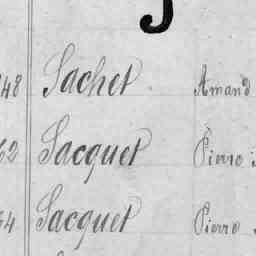 J
48 Jachet Amand
62 Jacquet Pierre
54 Jacquet Pierre